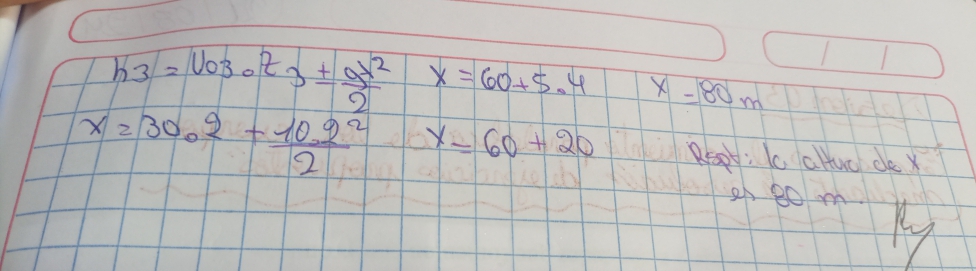 h3 = V03.t3 + gt²/2 x = 60+5.4 x = 80 m
x = 30.2 + 10.2²/2 x = 60 + 20 Resp: la altura de x
es 80 m.